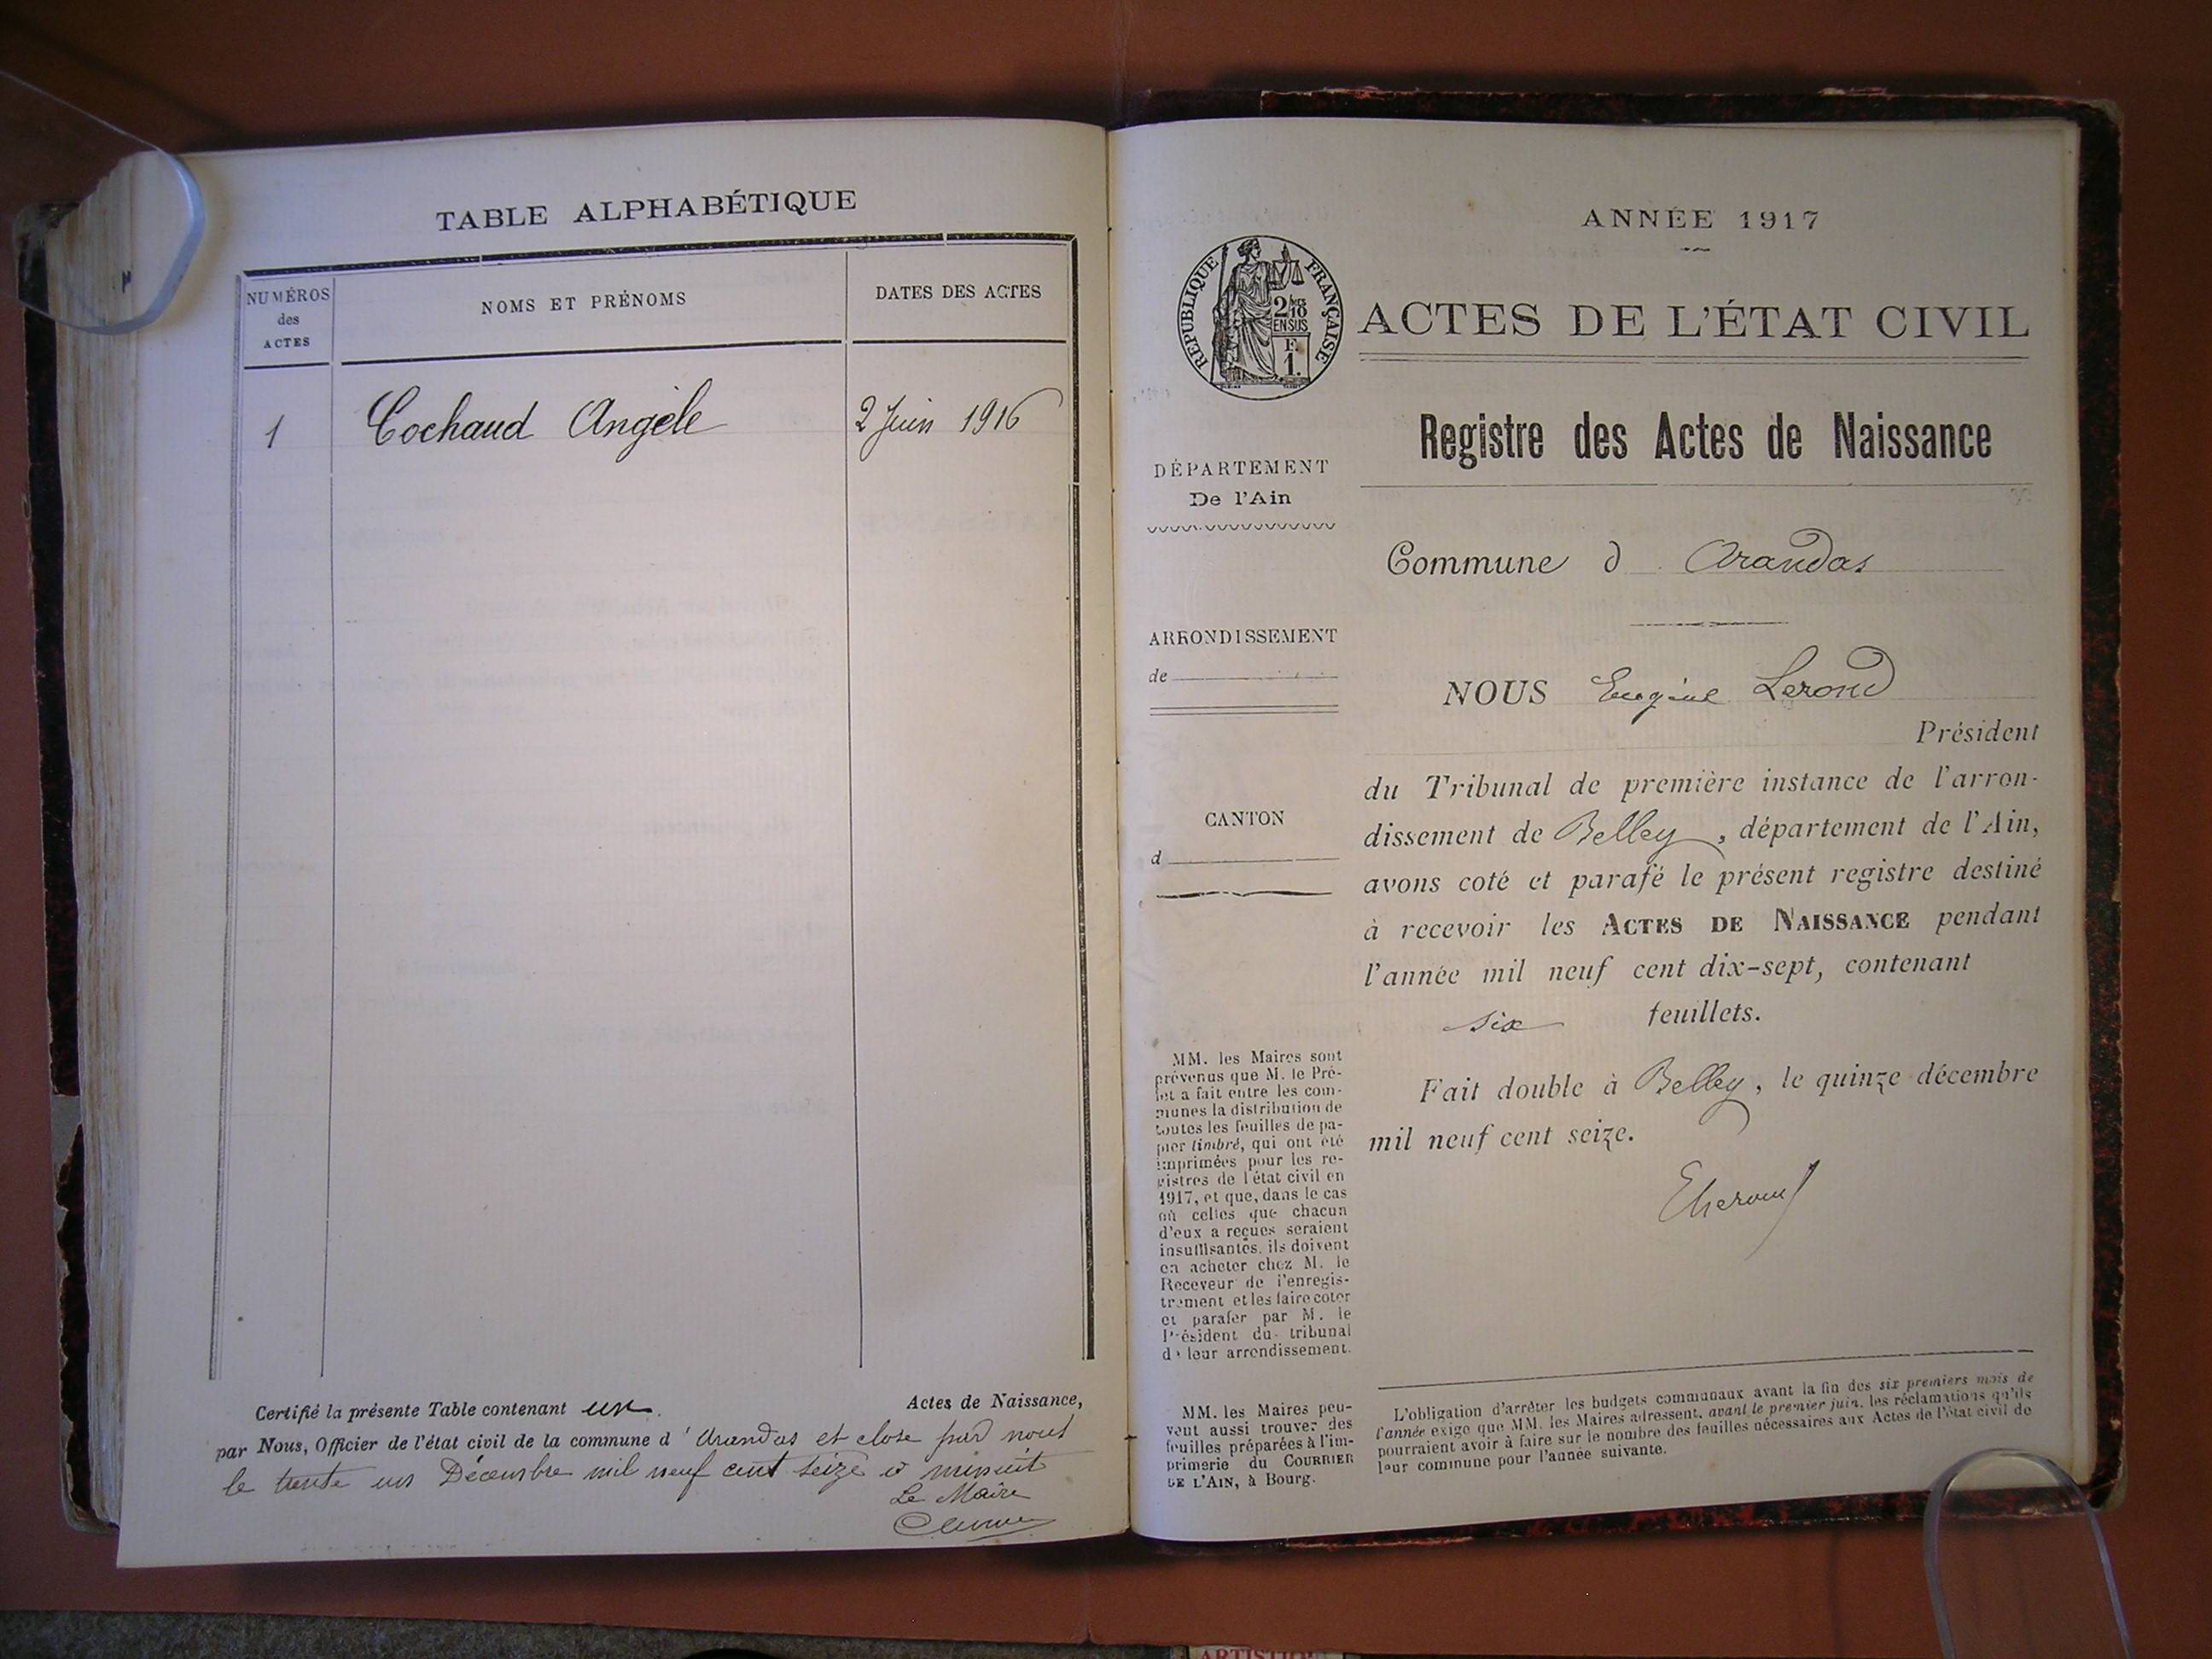 TABLE ALPHABÉTIQUE
NUMÉROS
des
ACTES
NOMS ET PRÉNOMS
DATES DES ACTES
1 Cochaud Angèle 2 Juin 1916
Certifié la présente Table contenant un Actes de Naissance,
par Nous, Officier de l'état civil de la commune d'Arandas et close par nous
le trente un Décembre mil neuf cent seize à minuit
Le Maire
ANNÉE 1917
RÉPUBLIQUE FRANÇAISE
2/10
EN SUS
F.
1.
ACTES DE L'ÉTAT CIVIL
Registre des Actes de Naissance
DÉPARTEMENT
De l'Ain
Commune d Arandas
ARRONDISSEMENT
de
NOUS Eugène Lerond
Président
du Tribunal de première instance de l'arron-
dissement de Belley, département de l'Ain,
avons coté et parafé le présent registre destiné
à recevoir les ACTES DE NAISSANCE pendant
l'année mil neuf cent dix-sept, contenant
six feuillets.
Fait double à Belley, le quinze décembre
mil neuf cent seize.
CANTON
d
MM. les Maires sont
prévenus que M. le Pré-
fet a fait entre les com-
munes la distribution de
toutes les feuilles de pa-
pier timbré, qui ont été
imprimées pour les re-
gistres de l'état civil en
1917, et que, dans le cas
où celles que chacun
d'eux a reçues seraient
insuffisantes, ils doivent
en acheter chez M. le
Receveur de l'enregis-
trement et les faire coter
et parafer par M. le
Président du tribunal
de leur arrondissement.
MM. les Maires peu-
vent aussi trouver des
feuilles préparées à l'im-
primerie du COURRIER
DE L'AIN, à Bourg.
L'obligation d'arrêter les budgets communaux avant la fin des six premiers mois de
l'année exige que MM. les Maires adressent, avant le premier juin, les réclamations qu'ils
pourraient avoir à faire sur le nombre des feuilles nécessaires aux Actes de l'état civil de
leur commune pour l'année suivante.